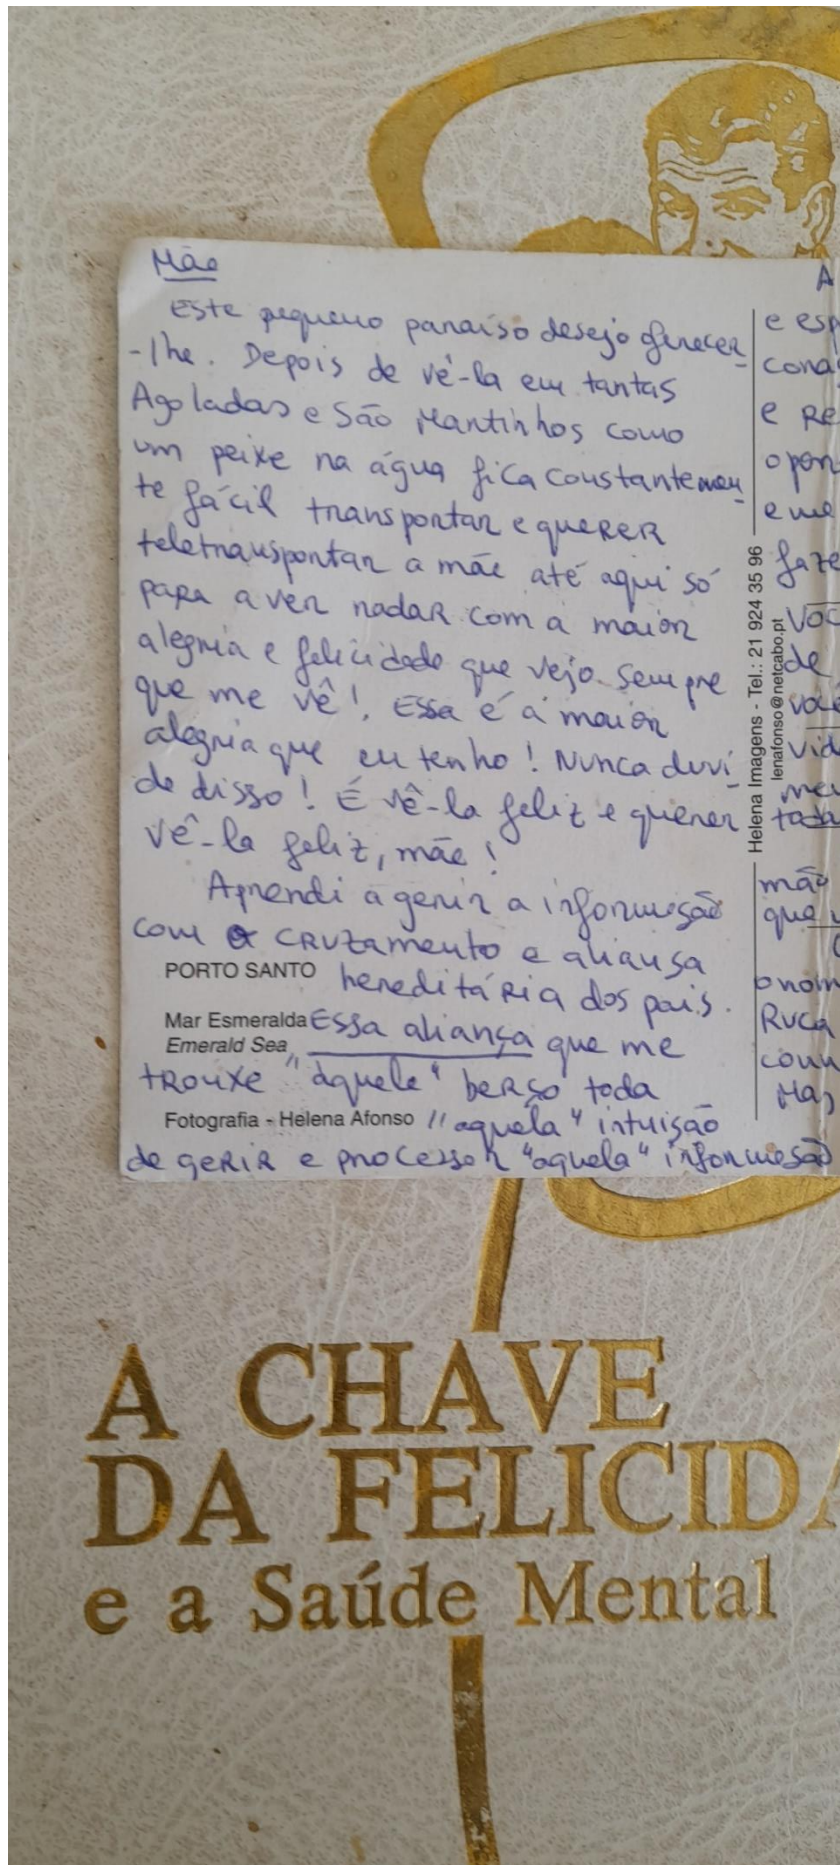 Mãe
Este pequeno paraíso desejo oferecer
-lhe. Depois de vê-la em tantas
Agoladas e São Martinhos como
um peixe na água fica constantemen
te fácil transportar e querer
teletransportar a mãe até aqui só
para a ver nadar com a maior
alegria e felicidade que vejo sempre
que me vê! Essa é a maior
alegria que eu tenho! Nunca duvi
de disso! É vê-la feliz e querer
vê-la feliz, mãe!
Aprendi a gerir a informação
com o cruzamento e aliança
PORTO SANTO hereditária dos pais.
Mar Esmeralda Essa aliança que me
Emerald Sea
trouxe "àquele" berço toda
Fotografia - Helena Afonso "aquela" intuição
de gerir e processar "aquela" informação
Helena Imagens - Tel.: 21 924 35 96
lenafonso@netcabo.pt
A
e esp
e Re
opor
e me
faze
voc
de
você
vid
meu
toda
mãe
que
o nom
Ruca
com
Mas
A CHAVE
DA FELICIDA
e a Saúde Mental